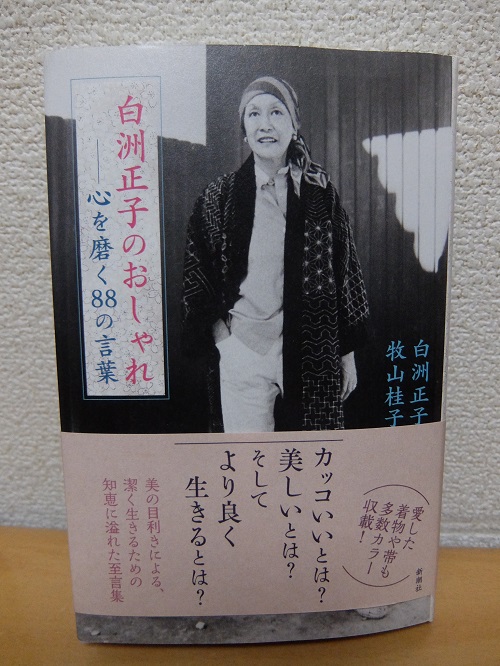 白洲正子のおしゃれ
――心を磨く88の言葉
白洲正子
牧山桂子
カッコいいとは?
美しいとは?
そして
より良く
生きるとは?
愛した
着物や帯も
多数カラー
収載!
美の目利きによる、
潔く生きるための
知恵に溢れた至言集
新潮社